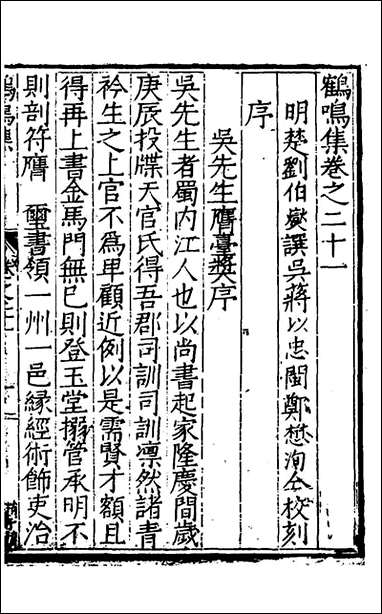 鶴鳴集卷之二十一
明楚劉伯燮譔吳蔣以忠閩鄭懋洵仝校刻
序
吳先生膺臺奬序
吳先生者蜀内江人也以尚書起家隆慶間歲
庚辰投牒天官氏得吾郡司訓司訓凛然諸青
衿生之上官不爲卑顧近例以是需賢才額且
得再上書金馬門無已則登玉堂搦管承明不
則剖符膺 璽書領一州一邑緣經術飾吏治
鶴鳴集